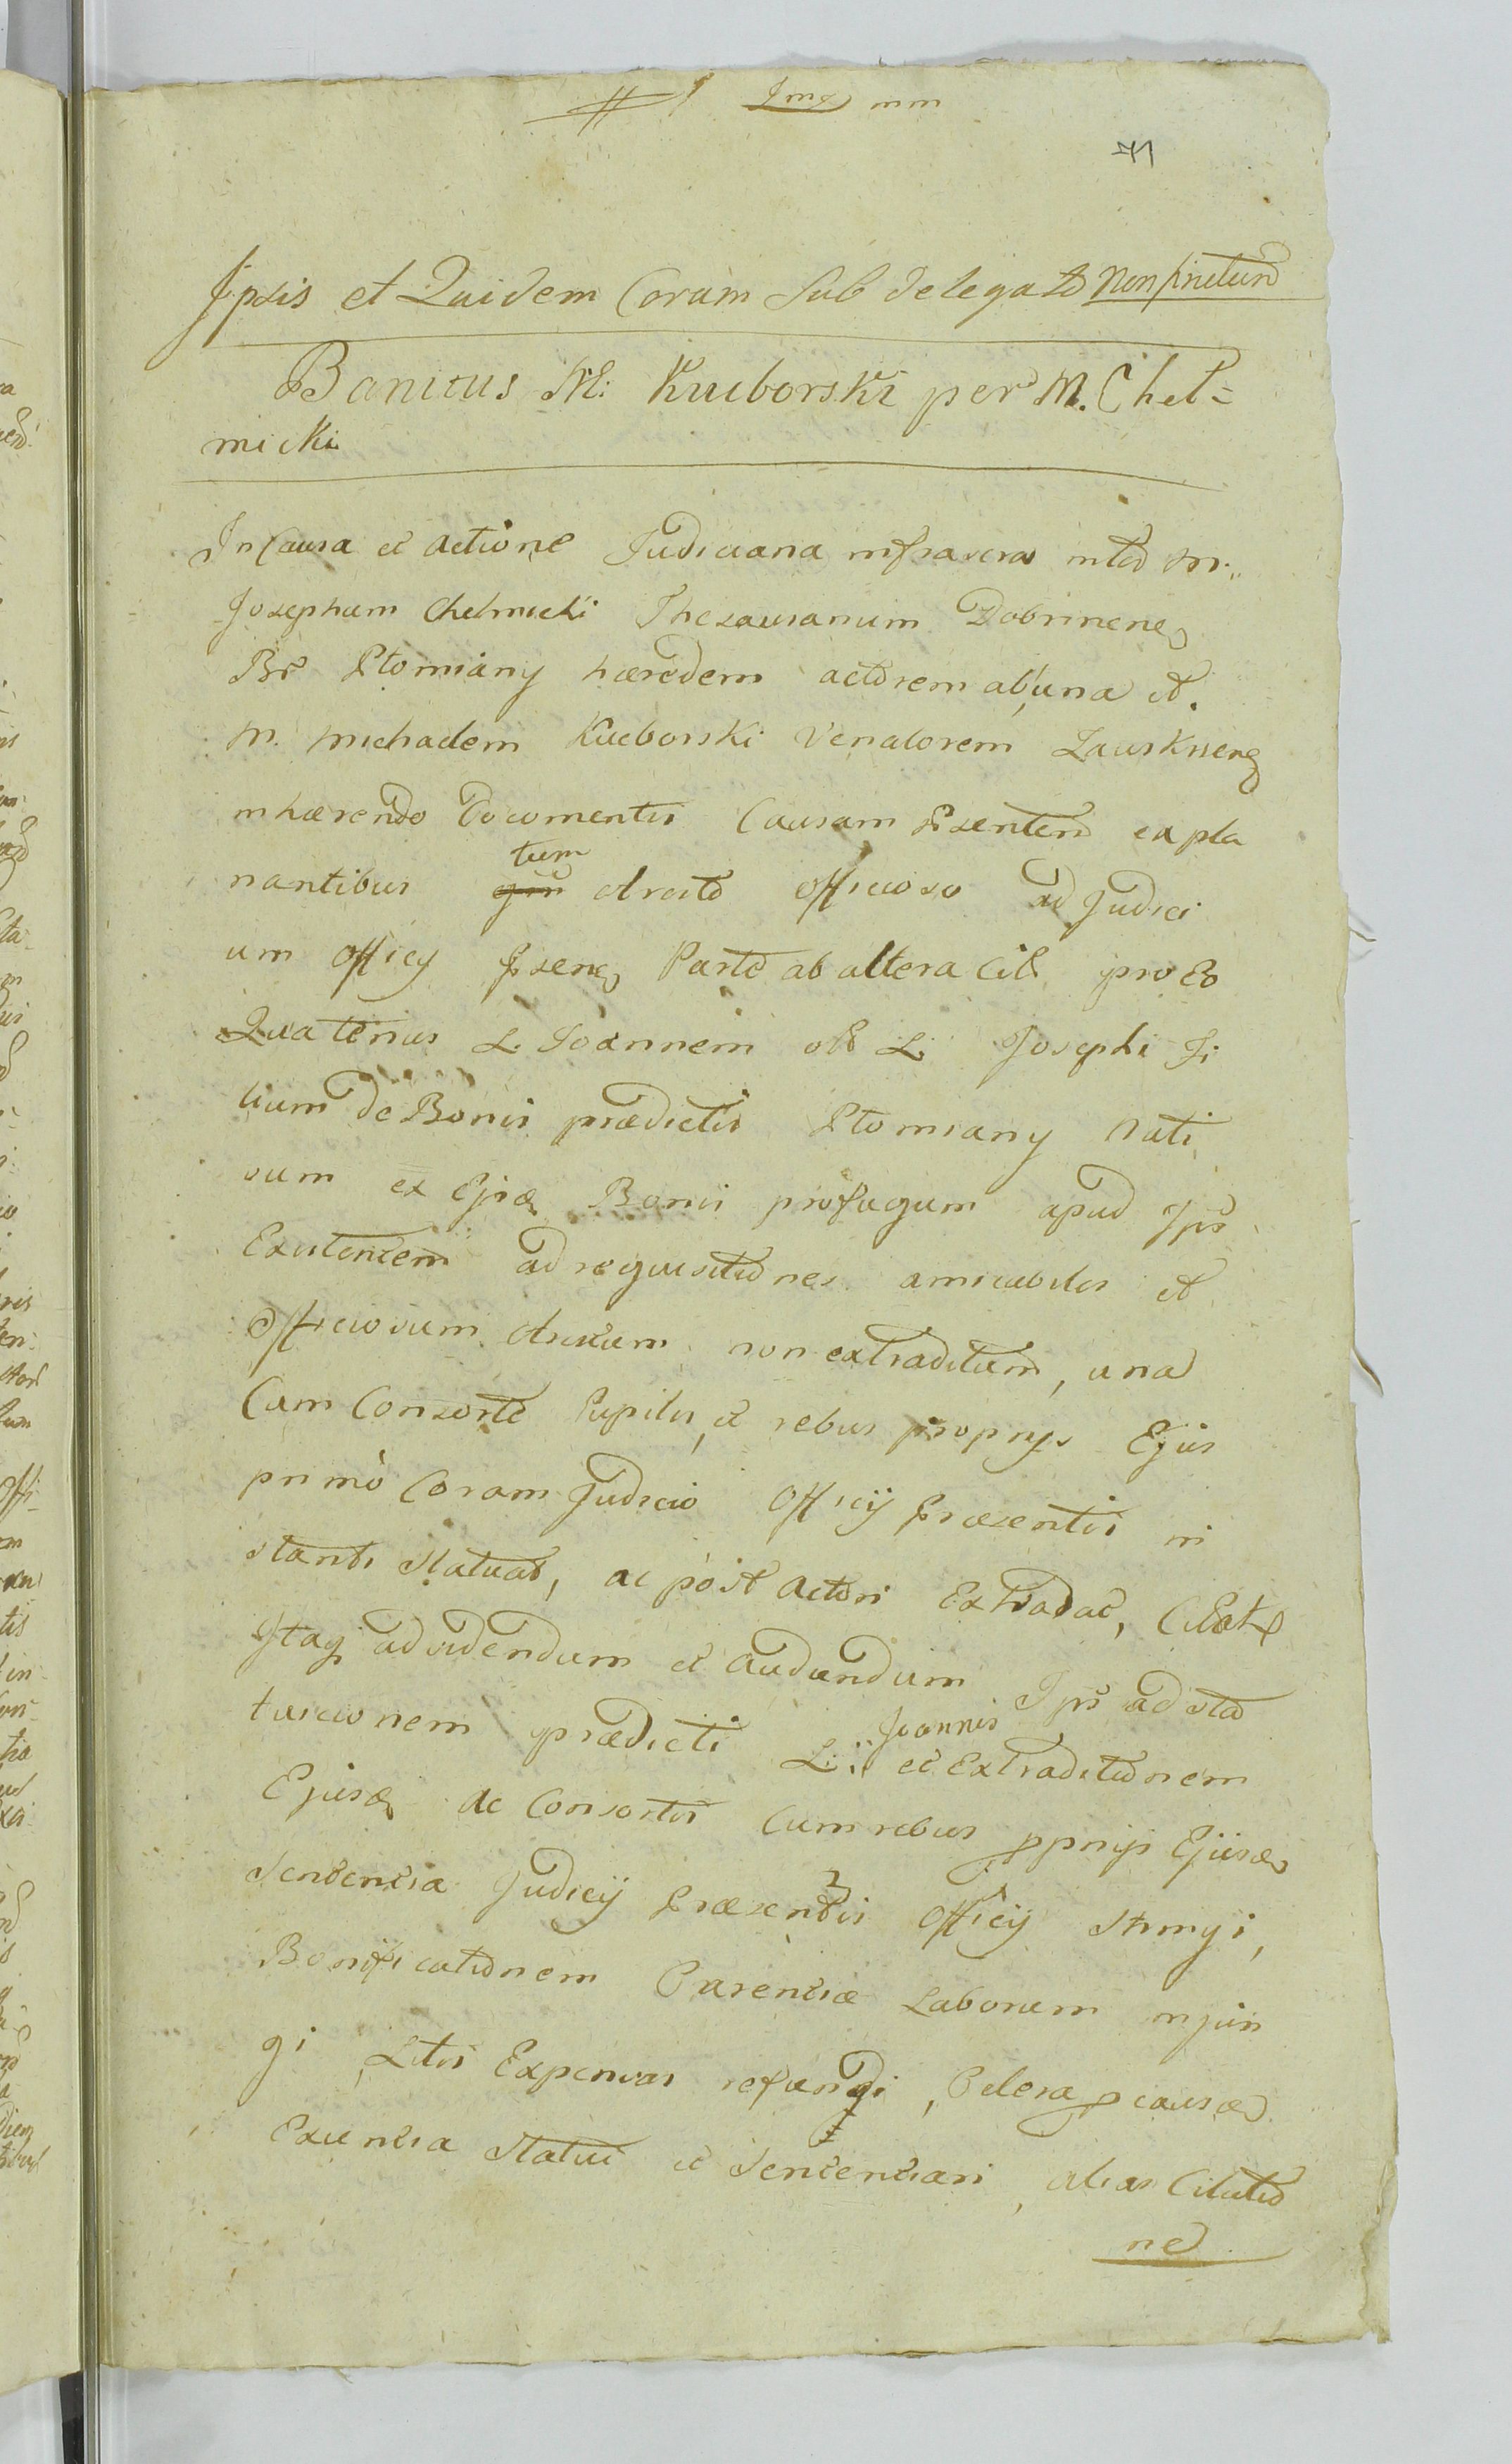 71
Ipsis et Quidem Coram Sub delegato
Banitus M: Kuborski per M. Cheł=
micki
In Causa et actione Judiciaria infrascra inter M.
Josephum Chełmicki Thesaurarium Dobrinenẽ
Br̃ Płomiany hæredem actorem ab una et
M. Michaelem Kuborski Venatorem
inhærendo Documentis Causam expla
nantibus tum arcto officioso ad Judici
um Officy Parte ab altera Cit. pro Eo
Quatenus L. Joannem olt L. Josephi Fi
lium de Bonis prædictis Płomiany Nati
vum ex Bonis profugum apud Ips
Existentem ad requisitiones amicabiles et
Officiosum Arctum non extraditum, una
Cum Consorte Pupilis, et rebus proprys Ejus
primo Coram Judicio Officij Præsentis in
stanti Statuat, ac post actori Extradat,
Itaq ad videndum et audiendum Ips ad sta
tuicionem prædicti L: Joannis et Extraditionem
Ejusd ac Consortis Cum rebus pprijs Ejusd
Sententia Judicij Præsentis Officij Stringi,
Bonificationem Carentiæ Laborum injun
gi, Litis Expensas refundi, Cetera p causæ
Exientia Statui et Sententiari, alias Citatio
ne